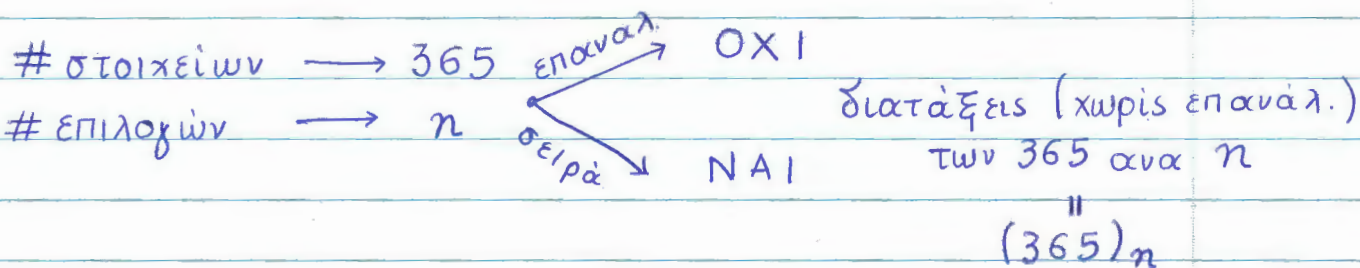 # στοιχείων → 365 επαναλ. ΟΧΙ
# επιλογών → n σειρά ΝΑΙ
διατάξεις (χωρίς επανάλ.)
των 365 ανα n
=
(365)n